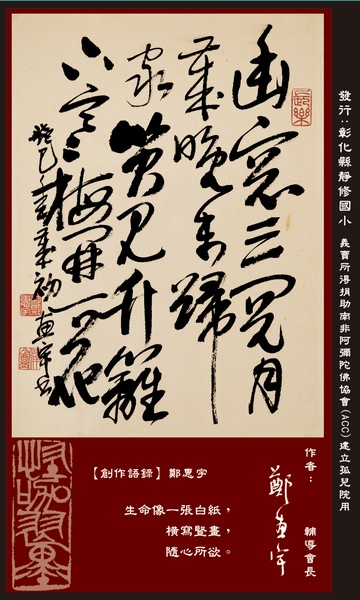 發行：彰化縣靜修國小 義賣所得捐助南非阿彌陀佛協會(ACC)建立孤兒院用
幽窗三閱月
歲晚未歸
家笑見升籬
下梅開一花
癸巳
惠宇書
作者：
鄭惠宇
輔導會長
【創作語錄】鄭惠宇
生命像一張白紙，
橫寫豎畫，
隨心所欲。